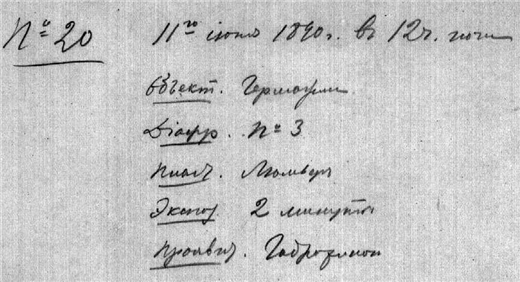 № 20 11го іюня 1890 г. въ 12 ч. ночи
Объект.
Діафр. № 3
Пласт. Люмьеръ
Экспоз. 2 минуты
Проявит. Гидрохинон